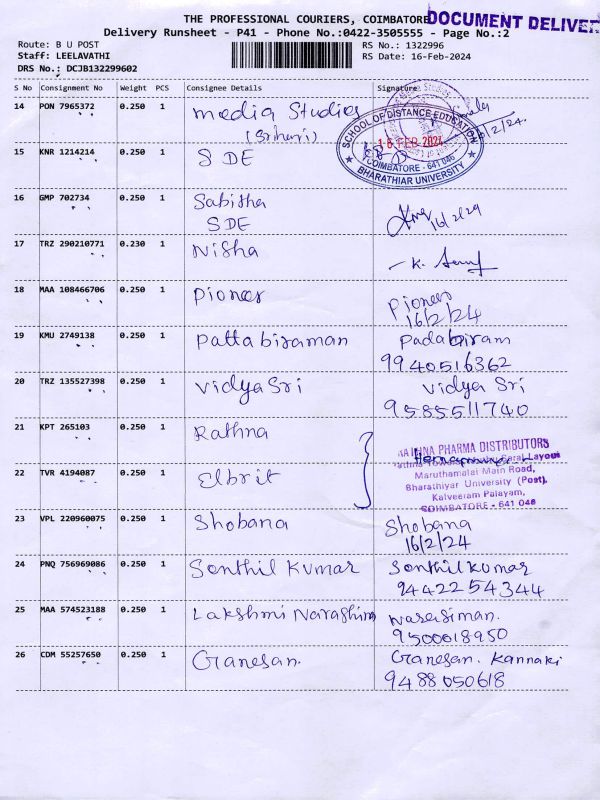 THE PROFESSIONAL COURIERS, COIMBATORE
DOCUMENT DELIVER
Delivery Runsheet - P41 - Phone No.:0422-3505555 - Page No.:2
Route: B U POST
RS No.: 1322996
Staff: LEELAVATHI
RS Date: 16-Feb-2024
DRS No.: DCJB132299602
S No Consignment No Weight PCS Consignee Details Signature
14 PON 7965372 0.250 1 Media Studies
(Srihari)
SCHOOL OF DISTANCE EDUCATION
16 FEB 2024
COIMBATORE - 641 046
BHARATHIAR UNIVERSITY
16/2/24.
15 KNR 1214214 0.250 1 SDE
16 GMP 702734 0.250 1 Sabitha
SDE
16/2/24
17 TRZ 290210771 0.230 1 Nisha
18 MAA 108466706 0.250 1 Pioneer Pioneer
16/2/24
19 KMU 2749138 0.250 1 Pattabiraman Padabiram
9940516362
20 TRZ 135527398 0.250 1 Vidya Sri Vidya Sri
9585511740
21 KPT 265103 0.250 1 Rathna
RATHNA PHARMA DISTRIBUTORS
Maruthamalai Main Road,
Bharathiyar University (Post),
Kalveeram Palayam,
COIMBATORE - 641 046
22 TVR 4194087 0.250 1 Elbrit
23 VPL 220960075 0.250 1 Shobana Shobana
16/2/24
24 PNQ 756969086 0.250 1 Senthil Kumar Senthilkumar
9442254344
25 MAA 574523188 0.250 1 Lakshmi Narashim Narasiman.
9500618950
26 CDM 55257650 0.250 1 Ganesan. Ganesan. Kannaki
9488050618